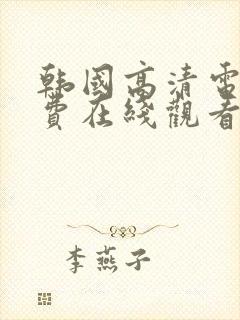 韩国高清電
費在綫觀看
李燕子